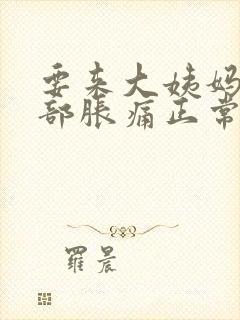 要来大姨妈
部胀痛正常
羅晨